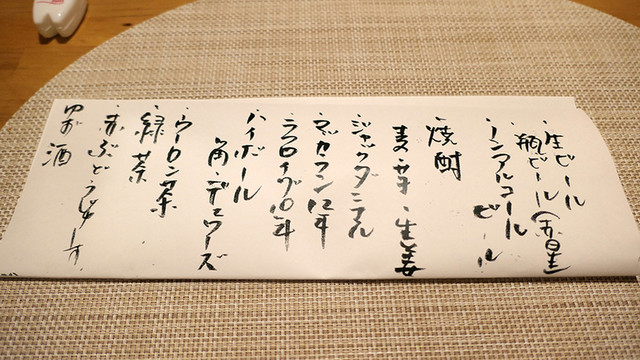 ・生ビール
瓶ビール(赤星
・ノンアルコール
ビール
・焼酎
麦・芋・生姜
・ジャックダニエル
・マッカラン12年
・ラフロイグ10年
・ハイボール
角・デュワーズ
・ウーロン茶
・緑茶
・赤ぶどうじゅーす
ゆず酒